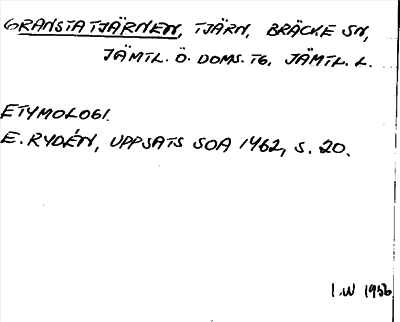 GRANSTATJÄRNEN, TJÄRN, BRÄCKE SN,
JÄMTL. Ö. DOMS. TG, JÄMTL. L.
ETYMOLOGI.
E. RYDÉN, UPPSATS SOA 1462, S. 20.
I.W 1956